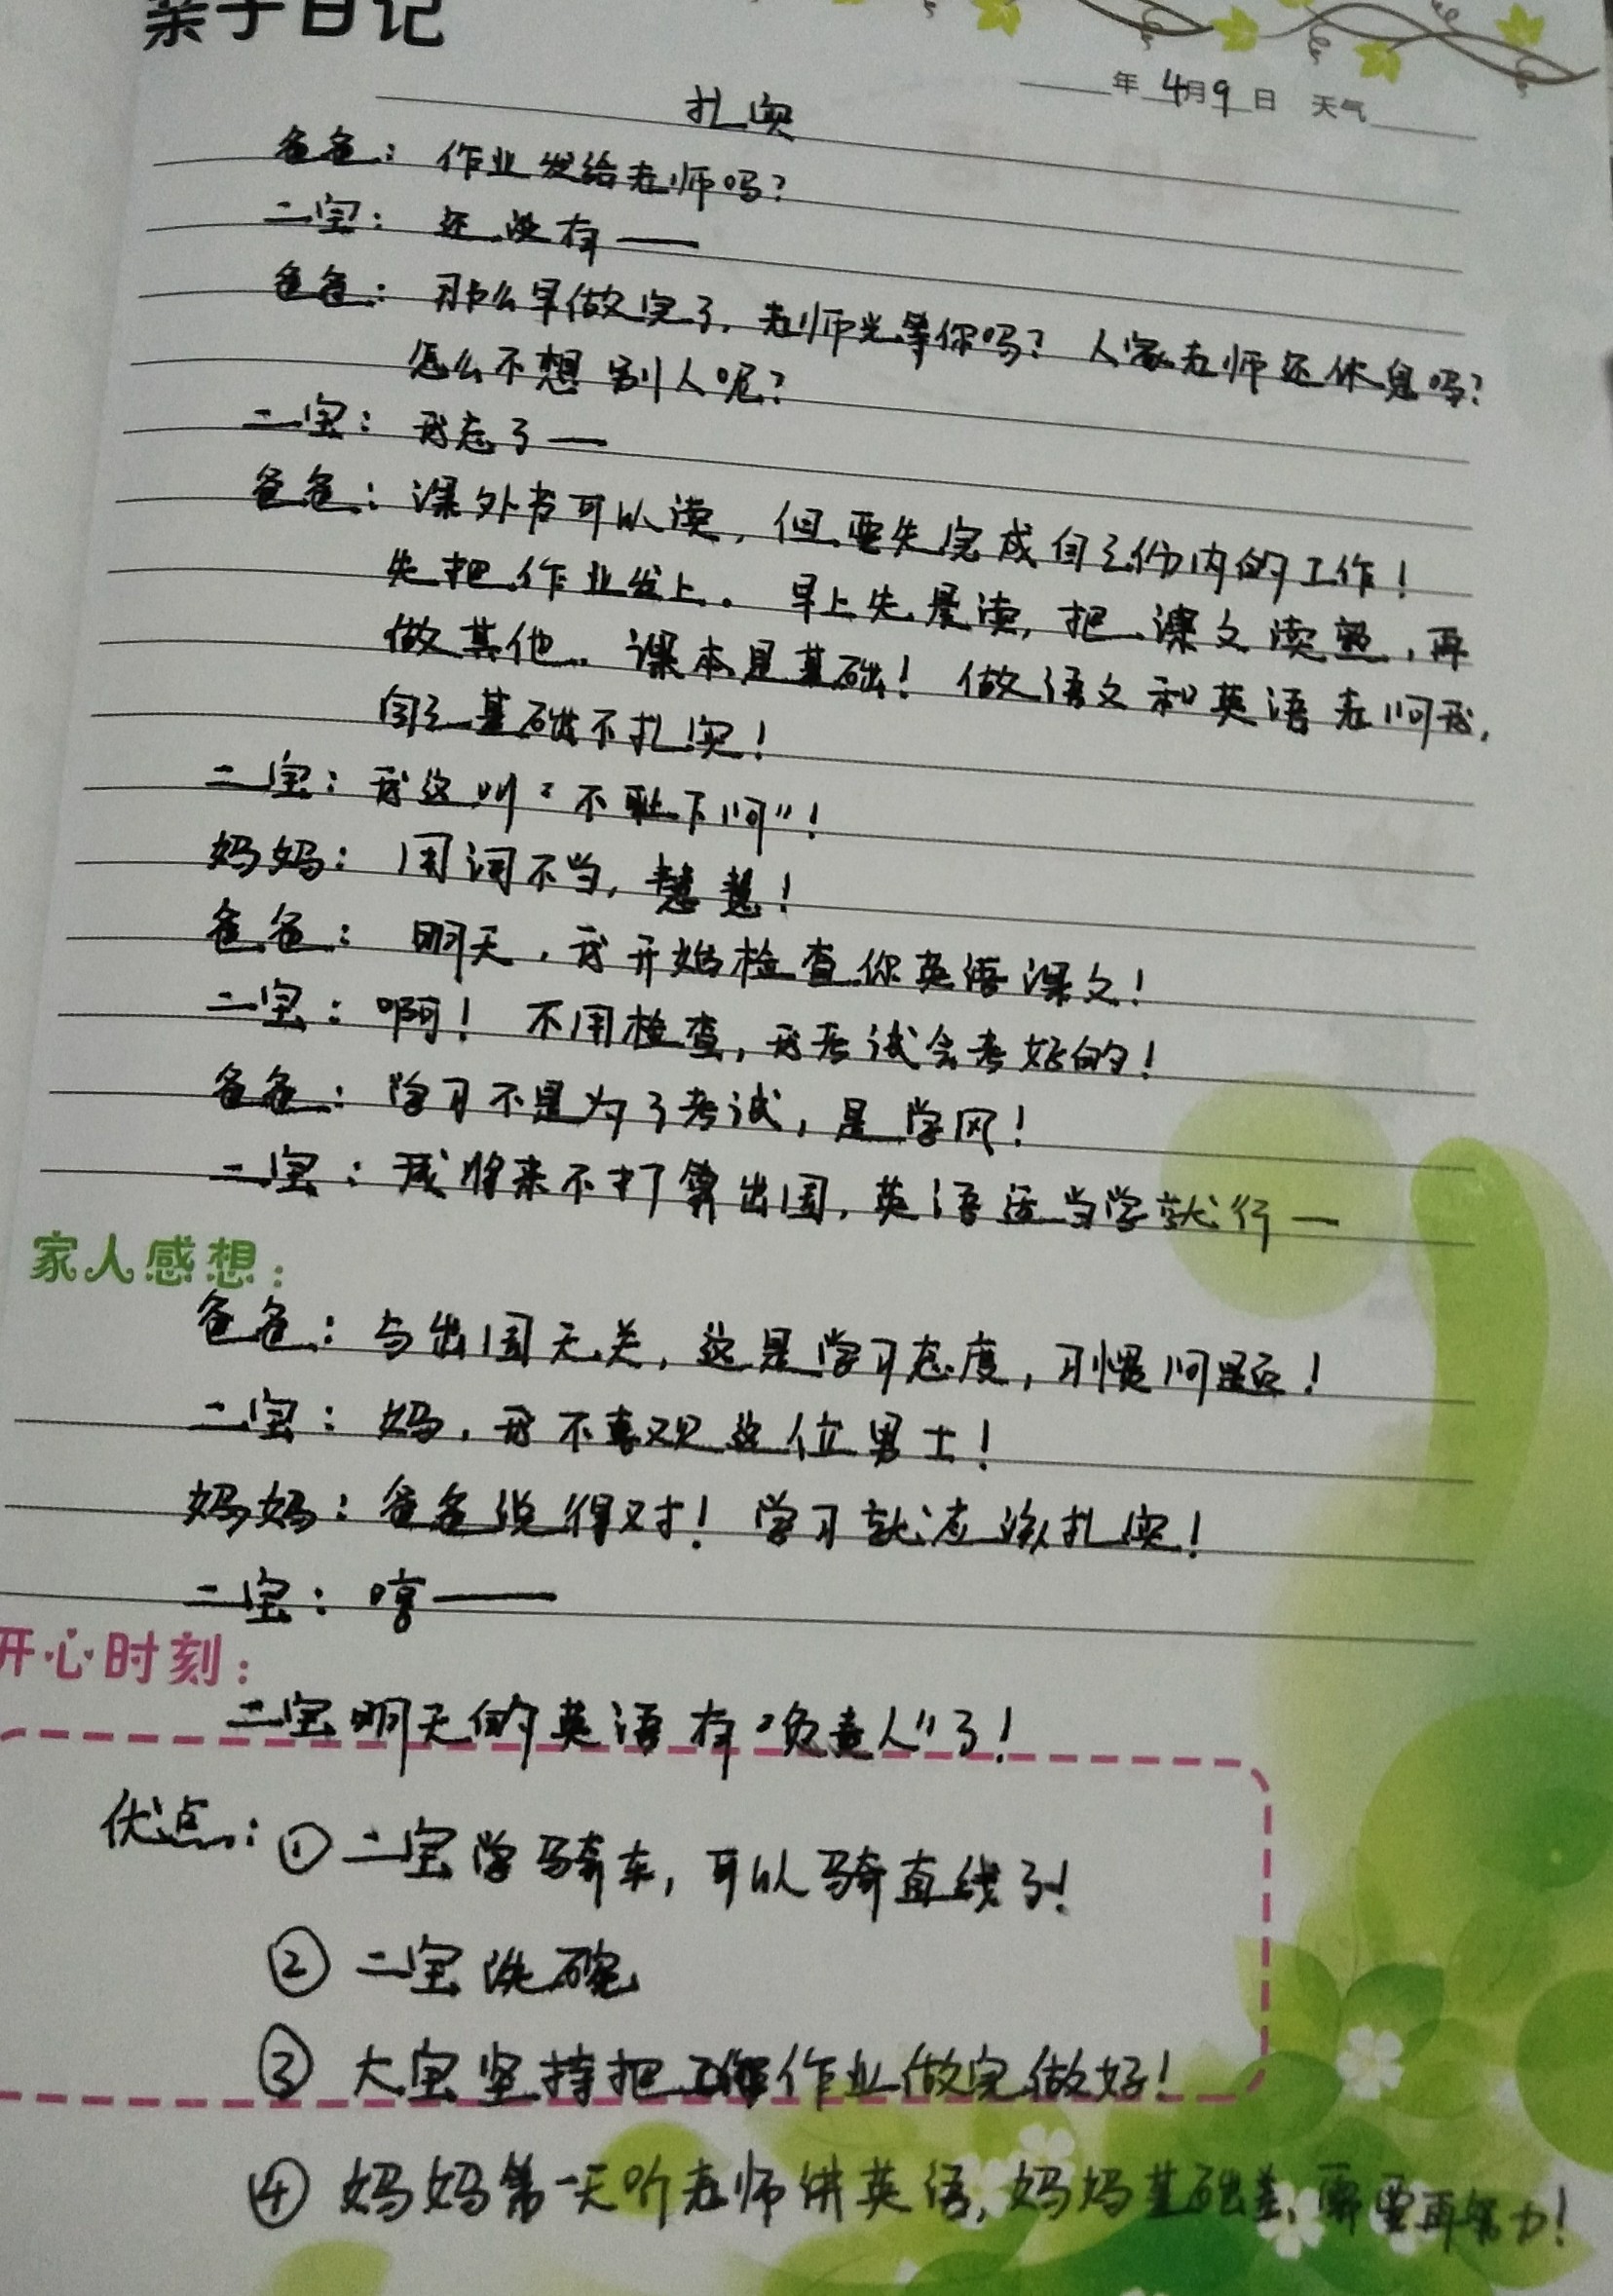 亲子日记
年 4月9日 天气
扎实
爸爸：作业发给老师吗？
二宝：还没有——
爸爸：那么早做完了，老师光等你吗？人家老师还休息吗？
怎么不想别人呢？
二宝：我忘了——
爸爸：课外书可以读，但要先完成自己份内的工作！
先把作业发上。早上先晨读，把课文读熟，再
做其他。课本是基础！做语文和英语老问我，
自己基础不扎实！
二宝：我这叫“不耻下问”！
妈妈：用词不当，慧慧！
爸爸：明天，我开始检查你英语课文！
二宝：啊！不用检查，我考试会考好的！
爸爸：学习不是为了考试，是学风！
二宝：我将来不打算出国，英语适当学就行—
家人感想：
爸爸：与出国无关，这是学习态度，习惯问题！
二宝：妈，我不喜欢这位男士！
妈妈：爸爸说得对！学习就应该扎实！
二宝：哼——
开心时刻：
二宝明天的英语有“负责人”了！
优点：①二宝学骑车，可以骑直线了！
②二宝洗碗
③大宝坚持把作业做完做好！
④妈妈第一天听老师讲英语，妈妈基础差，需要再努力！